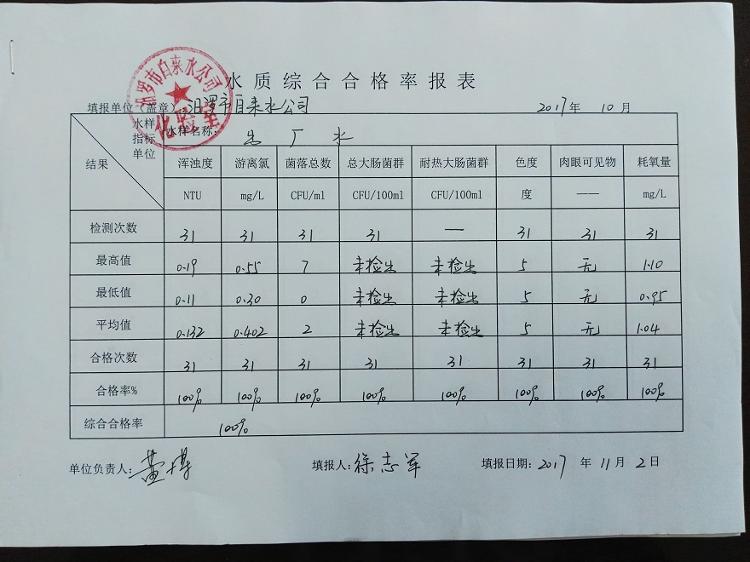 水质综合合格率报表
汨罗市自来水公司
化验室
填报单位（盖章）:汨罗市自来水公司 2017年 10月
水样 指标 单位 水样名称: 出厂水
结果 浑浊度 游离氯 菌落总数 总大肠菌群 耐热大肠菌群 色度 肉眼可见物 耗氧量
NTU mg/L CFU/ml CFU/100ml CFU/100ml 度 —— mg/L
检测次数 31 31 31 31 — 31 31 31
最高值 0.19 0.55 7 未检出 未检出 5 无 1.10
最低值 0.11 0.30 0 未检出 未检出 5 无 0.95
平均值 0.132 0.402 2 未检出 未检出 5 无 1.04
合格次数 31 31 31 31 31 31 31 31
合格率% 100% 100% 100% 100% 100% 100% 100% 100%
综合合格率 100%
单位负责人: 填报人:徐志军 填报日期:2017 年 11月 2日